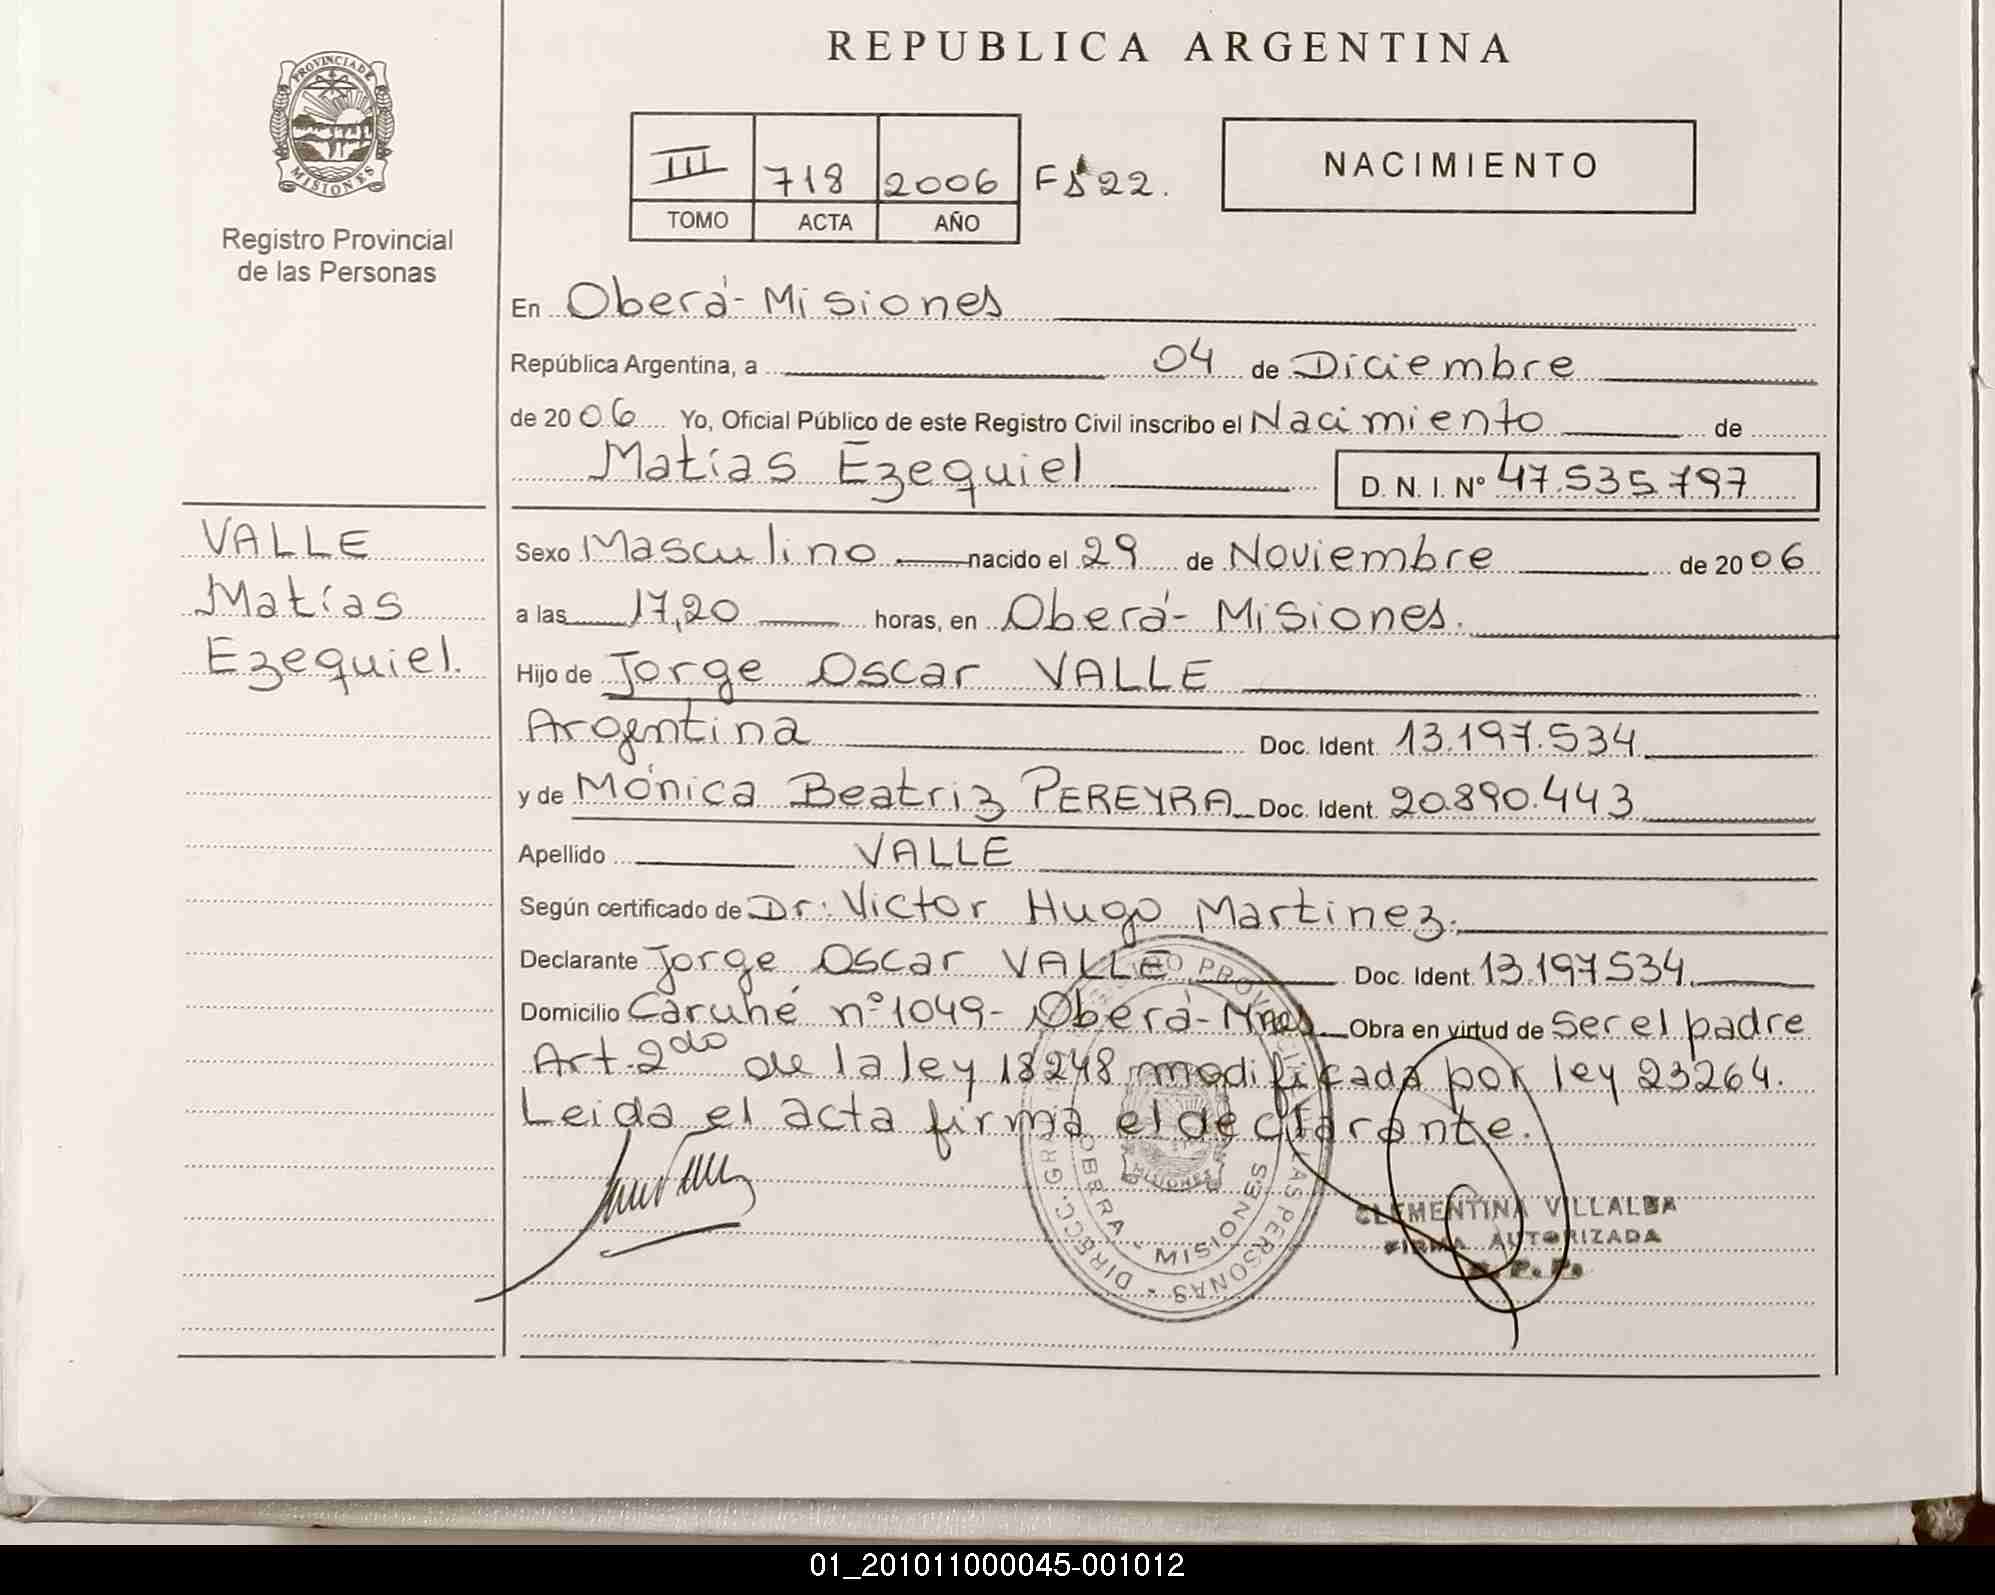 REPUBLICA ARGENTINA
PROVINCIA DE MISIONES
Registro Provincial
de las Personas
III 718 2006 Fº 22.
TOMO ACTA AÑO
NACIMIENTO
En Oberá - Misiones
República Argentina, a 04 de Diciembre
de 2006 Yo, Oficial Público de este Registro Civil inscribo el Nacimiento de
Matías Ezequiel D. N. I. Nº 47.535.797
VALLE
Matías
Ezequiel.
Sexo Masculino nacido el 29 de Noviembre de 2006
a las 17,20 horas, en Oberá - Misiones.
Hijo de Jorge Oscar VALLE
Argentina Doc. Ident. 13.197.534
y de Mónica Beatriz PEREYRA Doc. Ident. 20.890.443
Apellido VALLE
Según certificado de Dr. Victor Hugo Martinez.
Declarante Jorge Oscar VALLE Doc. Ident. 13.197.534
Domicilio Caruhé nº 1049 - Oberá - Mnes Obra en virtud de Ser el padre
Art. 2do de la ley 18248 modificada por ley 23264.
Leida el acta firma el declarante.
OBERA - MISIONES
CLEMENTINA VILLALBA
FIRMA AUTORIZADA
01_201011000045-001012